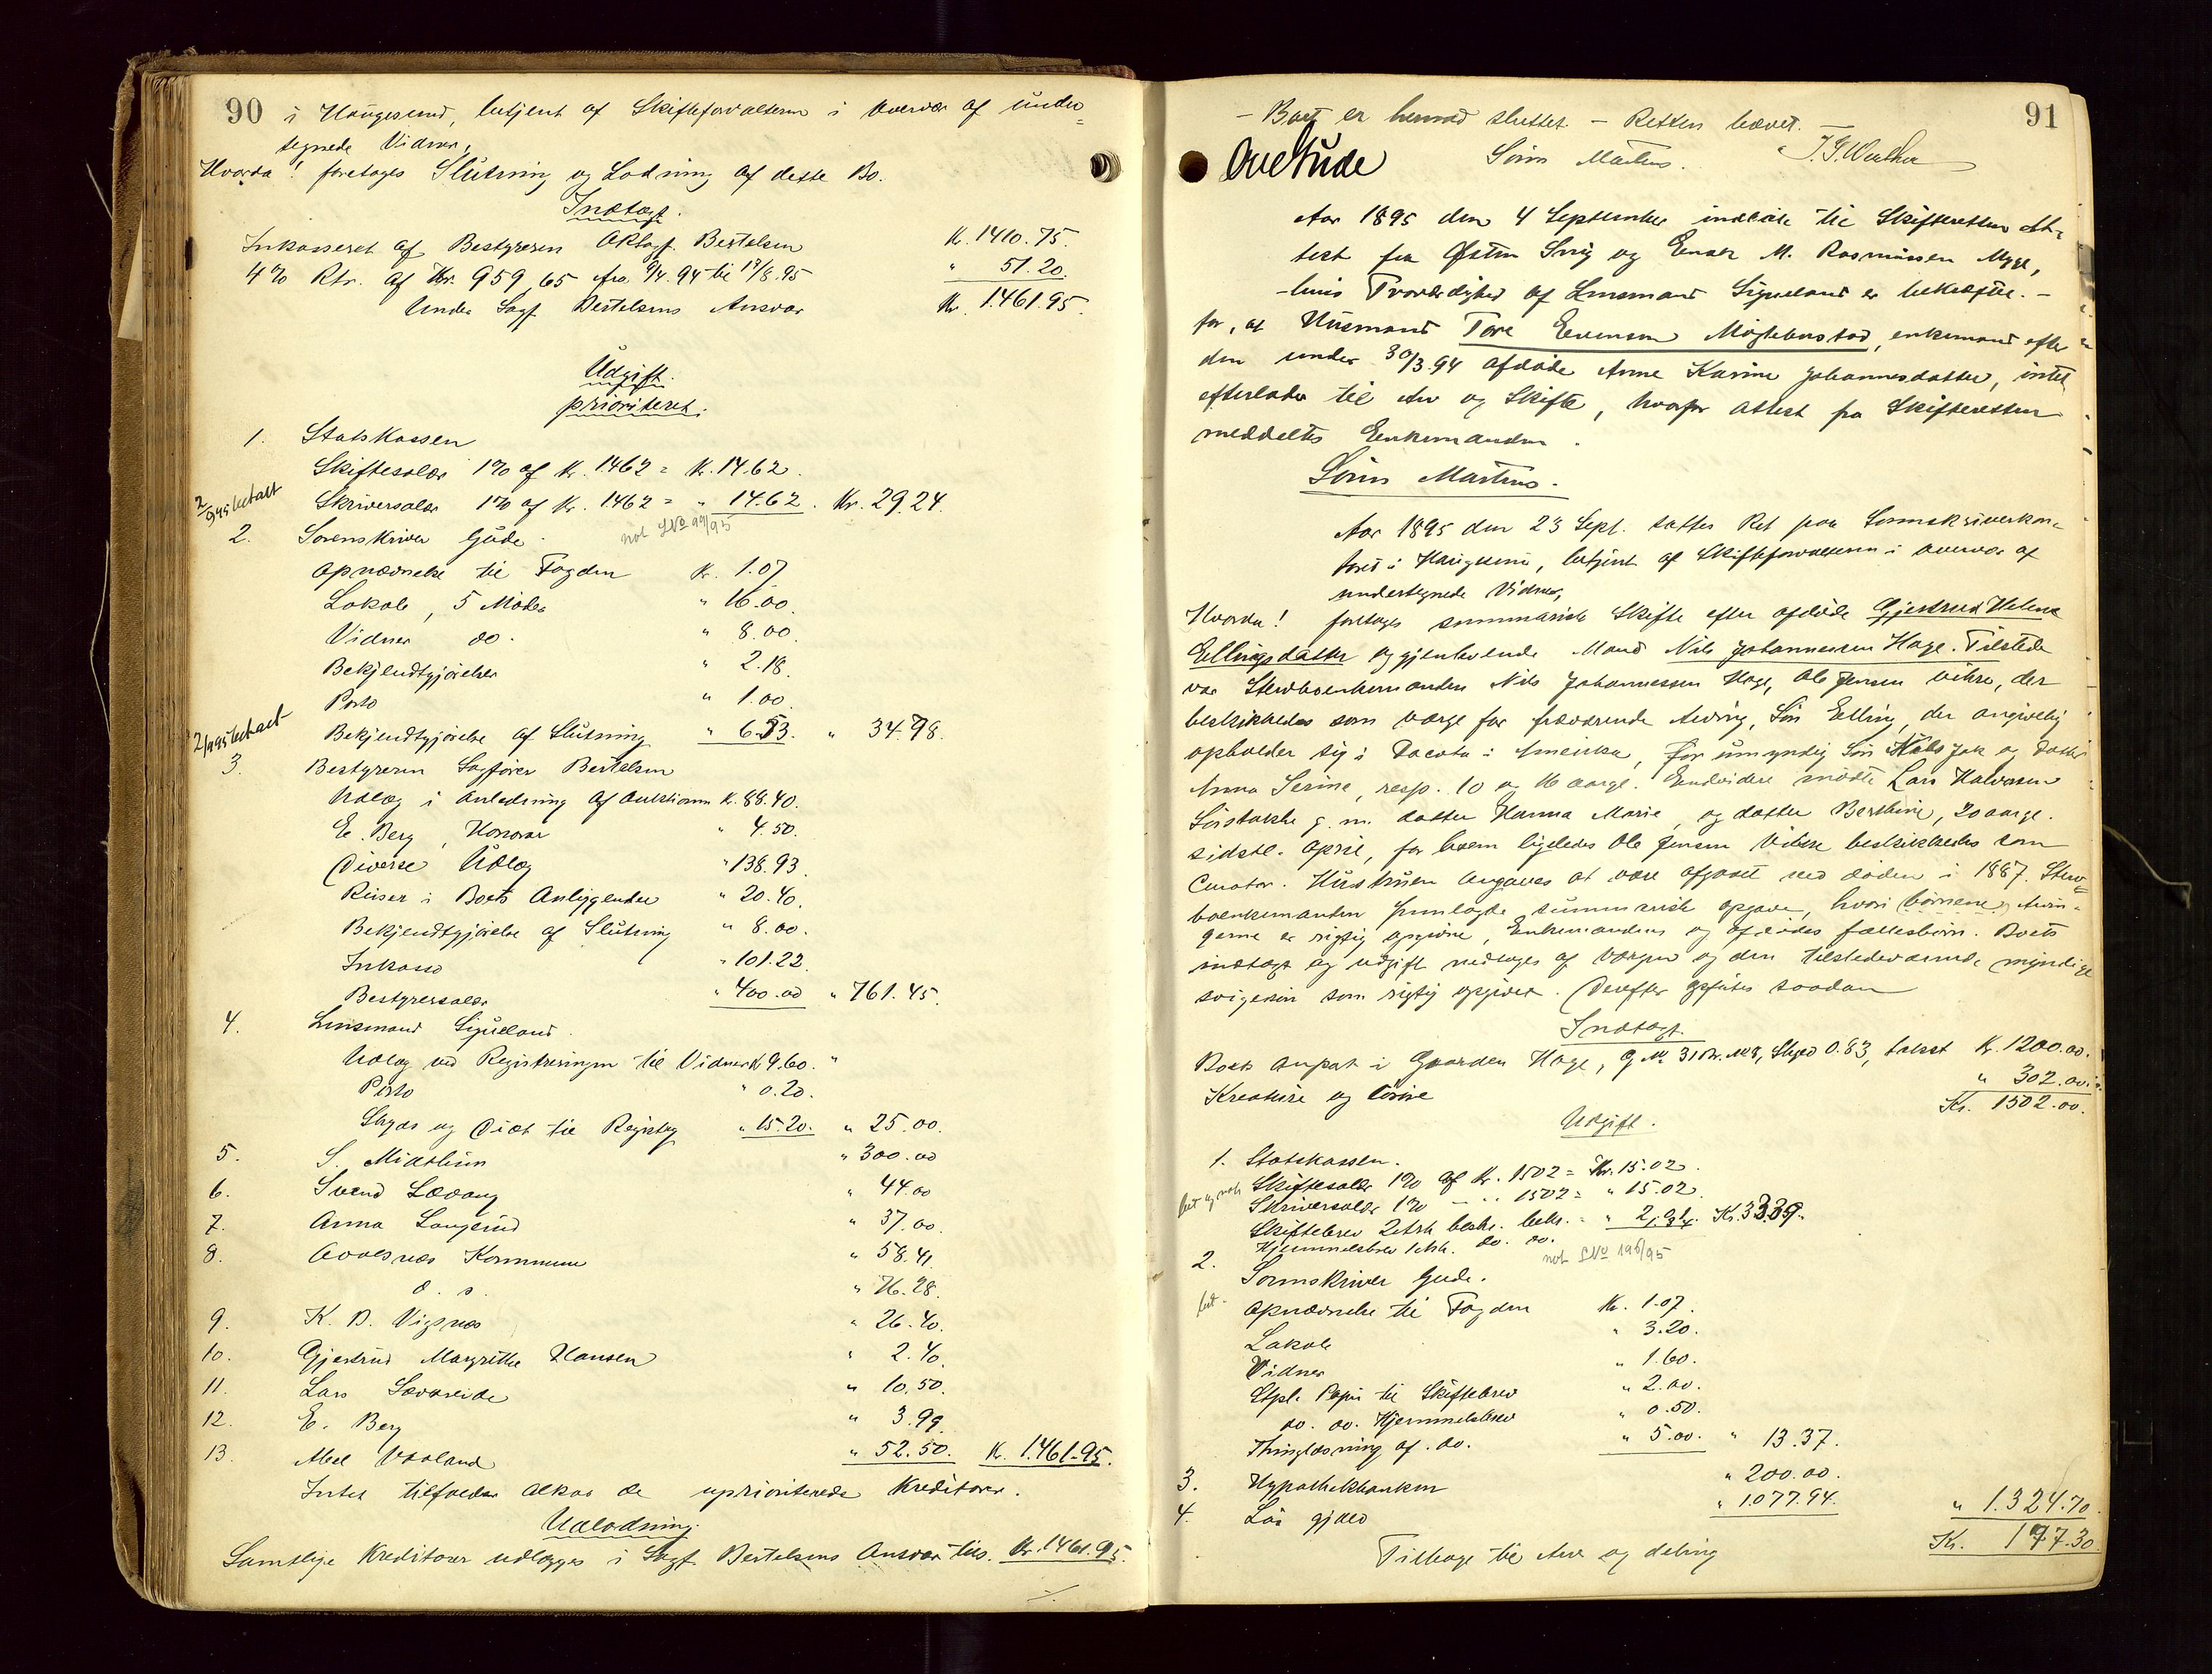 90 i Haugesund, betjent af Skifteforvalteren i overvær af under-
tegnede Vidner,
Hvorda! foretages Slutning og Lodning af dette Bo.
Indtægt.
Inkasseret af Bestyreren Bertelsen Kr. 1410.75.
4% Rtr. af Kr. 959,65 fra 9/4.94 til 19/8.95 " 51.20.
Under Sagf. Bertelsens Ansvar Kr. 1461.95.
Udgift.
prioriteret.
1. Statskassen
Skiftesalær 1% af Kr. 1462 = Kr. 14.62.
betalt Skriversalær 1% af Kr. 1462 = " 14.62. Kr. 29.24.
not LNo 99/95
2. Sorenskriver Gude.
Opnævnelse til Fogden Kr. 1.07
Lokale, 5 Møder " 16.00.
Vidner do. " 8.00.
Bekjendtgjørelser " 2.18.
Porto " 1.00.
betalt Bekjendtgjørelse af Slutning " 6.53. " 34.78.
3. Bestyreren Sagfører Bertelsen
Udlæg i Anledning af Auktionen Kr. 88.40.
E. Berg, Honorar " 4.50.
Diverse Udlæg " 138.93.
Reiser i Boets Anliggender " 20.40.
Bekjendtgjørelse af Slutning " 8.00.
Inkasso " 101.22.
Bestyrersalær " 400.00 " 761.45.
4. Lensmand Sigveland.
Udlæg ved Registreringen til Vidner Kr 9.60. "
Porto " 0.20.
Skyds og Diæt til Registrg " 15.20. " 25.00.
5. S. Midthun " 300.00
6. Svend Lævang " 44.00
7. Anna Langerud " 37.00.
8. Avalsnæs Kommune " 58.41.
d. s. " 76.28.
9. K. D. Vignæs " 26.40.
10. Gjertrud Margrethe Hansen " 2.40.
11. Lars Sævereide " 10.50.
12. E. Berg " 3.99.
13. Abel Vaaland " 52.50. Kr. 1.461.95.
Intet tilfalder altsaa de uprioriterede Kreditorer.
Udlodning.
Samtlige Kreditorer udlægges i Sagf. Bertelsens Ansvar Kr. 1461.95.
91
- Boet er hermed sluttet. - Retten hævet. -
Sørin Martens.
Aar 1895 den 4 September indkom til Skifteretten At-
test fra Østen Snig og Enok M. Rasmussen Myge,
- hvis Troværdighed af Lensmand Sigveland er bekræftet. -
for, at Husmand Tore Evensen Møgleбustad, enkemand efter
den under 30/3.94 afdøde Anne Karine Johannesdatter, intet
efterlader til Arv og Skifte, hvorfor attest fra Skifteretten
meddeltes Enkemanden.
Sørin Martens.
Aar 1895 den 23 Sept. sattes Ret paa Sorenskriverkon-
toret i Haugesund, betjent af Skifteforvalteren i overvær af
undertegnede Vidner,
Hvorda! foretages summarisk Skifte efter afdøde Gjertrud Helene
Ellingsdatter og gjenlevende Mand Nils Johannessen Hage. Tilstede
var Sterboenkemanden Nils Johannessen Hage, Ole Jensen Vikre, der
beskikkedes som værge for fraværende Arving, Søn Elling, der angivelig
opholder sig i Dacota i Amerika, for umyndig Søn Nils Jak og datter
Anna Serine, resp. 10 og 16 aarg. Endvidere mødte Lars Halvorsen
g. m. datter Hanna Marie, og datter Berthine, 20 aarg.
sidstl. April, for hvem ligeledes Ole Jensen Vikre beskikkedes som
Curator. Hustruen angaves at være afgaaet ved døden i 1887. Sterv-
boenkemanden fremlagde summarisk opgave, hvori børnene Arvin-
gerne er rigtig opgivne, Enkemandens og afdødes fællesbørn. Boets
indtægt og udgift vedtages af Værgen og den tilstedeværende myndige
svigersøn som rigtig opgivet. Derefter opførtes saadan
Indtægt.
Boets anpart i Gaarden Hage, G. No 31 Br. No 8, Skyld 0.83, takst Kr. 1200.00.
Kreature og løsøre " 302.00.
Kr. 1502.00.
Udgift.
1. Statskassen.
Skiftesalær 1% af Kr. 1502 = Kr. 15.02.
Skriversalær 1% - " 1502 = " 15.02.
Skiftebrev 2 Ark beskr. bekr. = " Kr. 33.39.
Hjemmelsbrev 1 Ark. do. do.
not LNo 196/95
2. Sorenskriver Gude.
bet. Opnævnelse til Fogden Kr. 1.07.
Lokale " 3.20.
Vidner " 1.60.
Stpl. Papir til Skiftebrev " 2.00.
do. do. Hjemmelsbrev " 0.50.
Thinglæsning af do. " 5.00. " 13.37.
3. Hypothekbanken " 200.00.
4. Løs gjæld " 1.077.94. " 1.324.70.
Tilbage til Arv og deling Kr. 177.30.